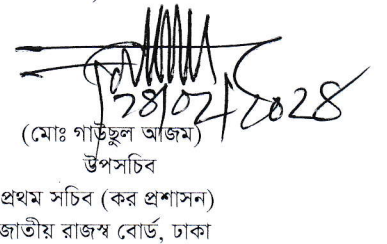 ২৪/০২/২০২৪
(মোঃ গাউছুল আজম)
উপসচিব
প্রথম সচিব (কর প্রশাসন)
জাতীয় রাজস্ব বোর্ড, ঢাকা